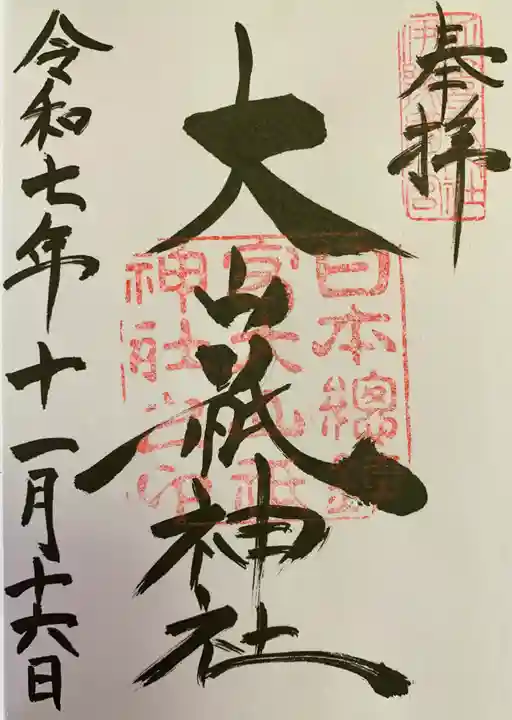 奉拝
大山祇神社
日本總鎮
守大山祇
神社
令和七年十一月十六日